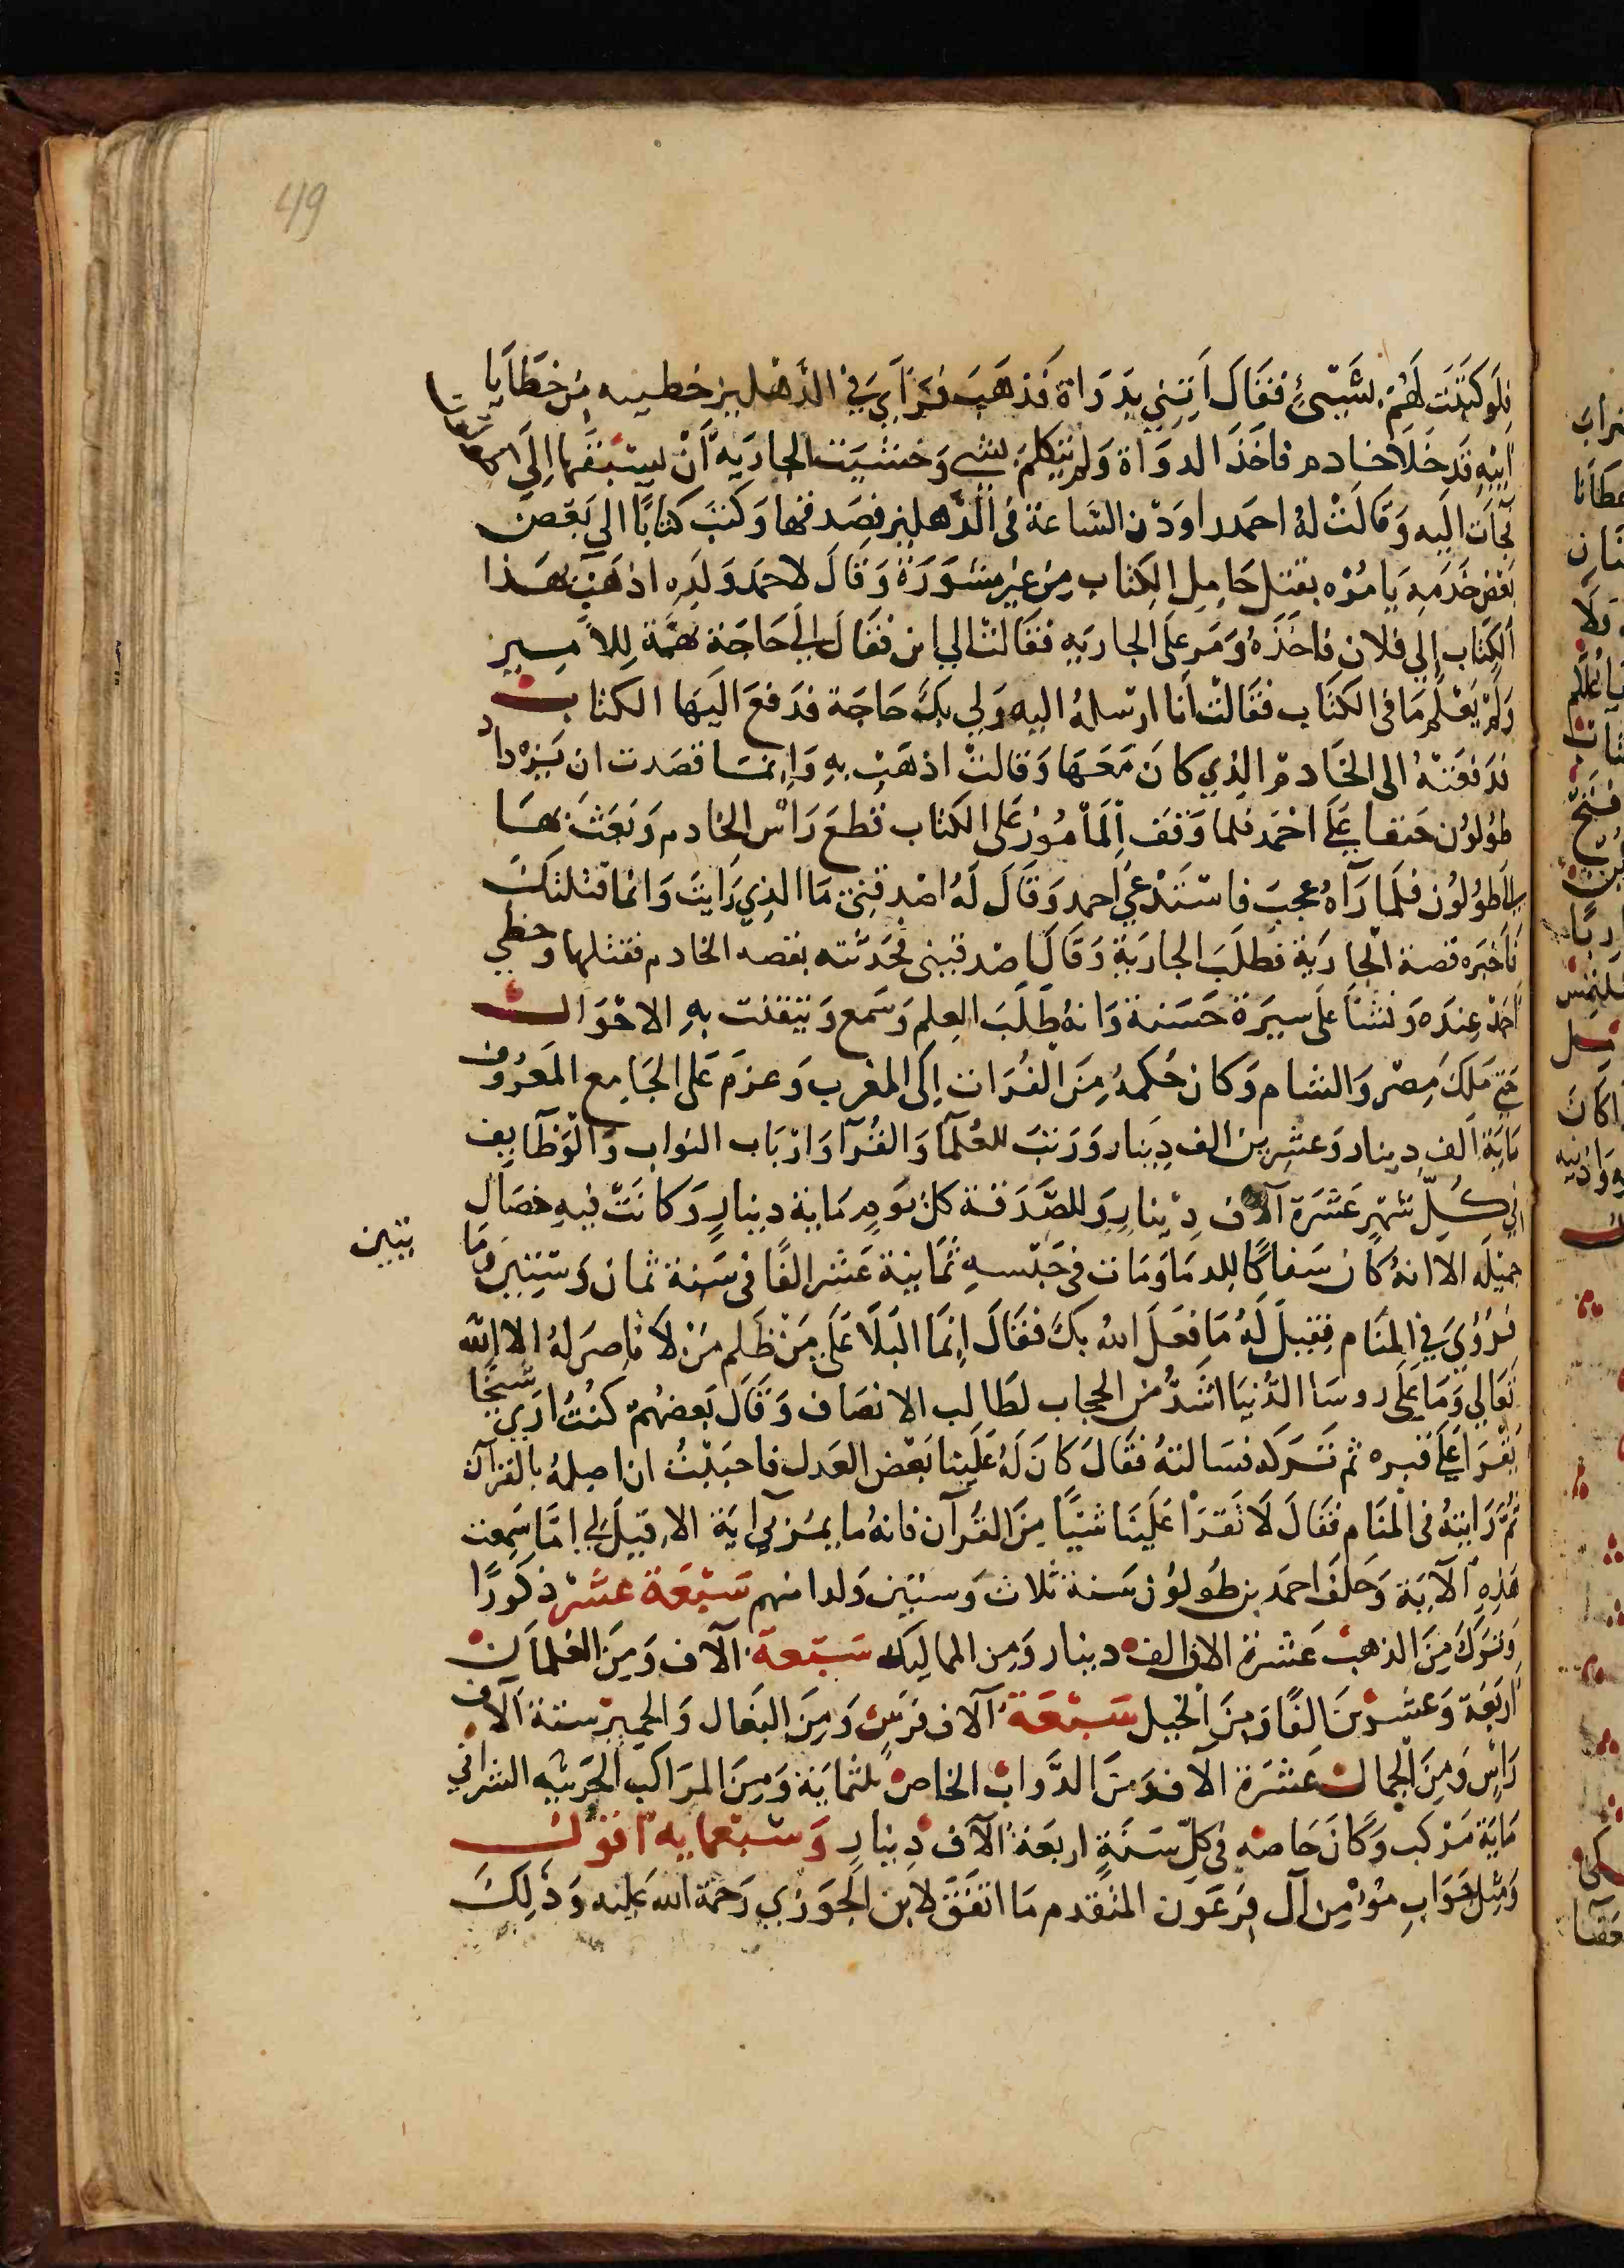 49
فلو كتبت لهم بشيئ فقال اتني بدواة فذهب فراي في الدهليز خطيه من خطايا
ابيه قد خلا خادم فاخذ الدواة ولم يتكلم بشي وخشيت الجاريه أن يسبقها الي
فجات اليه وقالت له احمد راودن الساعة في الدهليز فصدقها وكتب كتابا الى بعض
بعض خدمه يامره بقتل حامل الكتاب من غير مشورة وقال لاحمد ولده اذهب بهذا
الكتاب الي فلان فاخذه ومر على الجاريه فقالت الي اين فقال لي حاجة مهمة للامير
ولم يعلم ما في الكتاب فقالت أنا ارسله اليه ولي بك حاجة فدفع اليها الكتاب
فدفعته الى الخادم الذي كان معها وقالت اذهب به وإنما قصدت ان يزداد
طولون حنقا على احمد فلما وقف المأمور على الكتاب قطع راس الخادم وبعث بها
الى طولون فلما رآه عجب فاستدعي احمد وقال له اصدقني ما الذي رايت وانما قتلتك
فاخبره قصة الجارية فطلب الجارية وقال اصدقيني فحدثته بقصه الخادم فقتلها وحظي
أحمد عنده ونشأ على سيرة حسنة وانه طلب العلم وسمع وتنقلت به الاحوال
حتى ملك مصر والشام وكان حكمه من الفرات إلى المغرب وعزم على الجامع المعروف
ماية ألف دينار وعشرين الف دينار ورتب للعلما والفقرا وارباب النواب والوظايف
في كل شهر عشرة آلاف دينار وللصدقة كل يوم ماية دينار وكانت فيه خصال
جميله الا انه كان سفاكا للدما ومات في حبسه ثمانية عشر الفا في سنة ثمان وستين وما
يتين
فرؤي في المنام فقيل له ما فعل الله بك فقال إنما البلا على من ظلم من لا ناصر له الا الله
تعالي وما على روسا الدنيا اشد من الحجاب لطالب الانصاف وقال بعضهم كنت اري شيخا
يقرا على قبره ثم تركه فسالته فقال كان له علينا بعض العدل فاحببت ان اصله بالقرآن
ثم رايته في المنام فقال لا تقرا علينا شيا من القرآن فانه ما يمر بي اية الا قيل لي اما سمعت
هذه الآية وخلف احمد بن طولون سنة ثلاث وستين ولدا منهم سبعة عشر ذكورا
وترك من الذهب عشرة الاف الف دينار ومن المماليك سبعة آلاف ومن الغلمان
اربعة وعشرين الفا ومن الخيل سبعة آلاف فرس ومن البغال والحمير ستة آلاف
راس ومن الجمال عشرة الاف ومن الدواب الخاص ثلثماية ومن المراكب الحربيه الشراني
ماية مركب وكان خاصه في كل سنة اربعة آلاف دينار وسبعمايه
ومثل جواب مؤمن آل فرعون المتقدم ما اتفق لابن الجوزي رحمة الله عليه وذلك